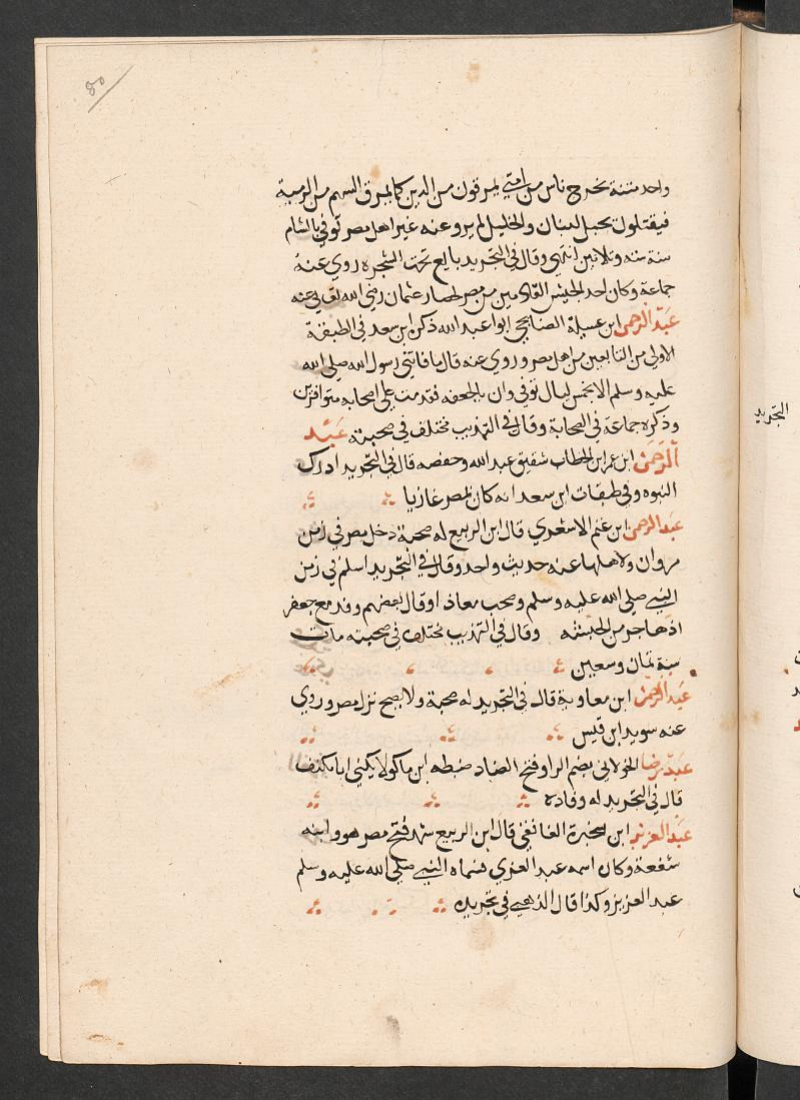 واحد متنه يخرج ناس من امتي يمرقون من الدين كما يمرق السهم من الرمية
فيقتلون بجبل لبنان والخليل لم يرو عنه غير اهل مصر توفي بالشام
سنة ستة وثلاثين انتهي وقال في التجريد بايع تحت الشجره روي عنه
جماعة وكان احد الجيش القادمين من مصر لحصار عثمان رضي الله تعالي عنه
عبد الرحمن ابن عسيلة الصنابحي ابوا عبد الله ذكره ابن سعد في الطبقة
الاولي من التابعين من اهل مصر وروي عنه قال ما فاتني رسول الله صلي الله
عليه وسلم الا بخمس ليال توفي وان بالجحفه فقدمت علي اصحابه متوافرين
وذكره جماعة في الصحابة وقال في التهذيب مختلف في صحبته عبد
الرحمن ابن عمر ابن الخطاب شقيق عبد الله وحفصه قال في التجريد ادرك
النبوه وفي طبقات ابن سعد انه كان بمصر غازيا
عبد الرحمن ابن غنم الاشعري قال ابن الربيع له صحبة دخل مصر في زمن
مروان ولاهلها عنه حديث واحد وقال في التجريد اسلم في زمن
النبي صلي الله عليه وسلم وصحب معاذ اوقال بعضهم وفد مع جعفر
اذ هاجر من الحبشه وقال في التهذيب مختلف في صحبته مات
سنة ثمان وسعين
عبد الرحمن ابن معاوية قال في التجريد له صحبة ولا يصح نزل مصر وروي
عنه سويد ابن قيس
عبد رضا الخولاني بضم الرا وفتح الضاد ضبطه ابن ماكولا يكني ابا مكنف
قال في التجريد له وفاده
عبد العزيز ابن سخبرة الغافقي قال ابن الربيع شهد فتح مصر هو وابنه
شفعة وكان اسمه عبد العزي فسماه النبي صلي الله عليه وسلم
عبد العزيز وكذا قال الذهبي في تجريده
التجريد